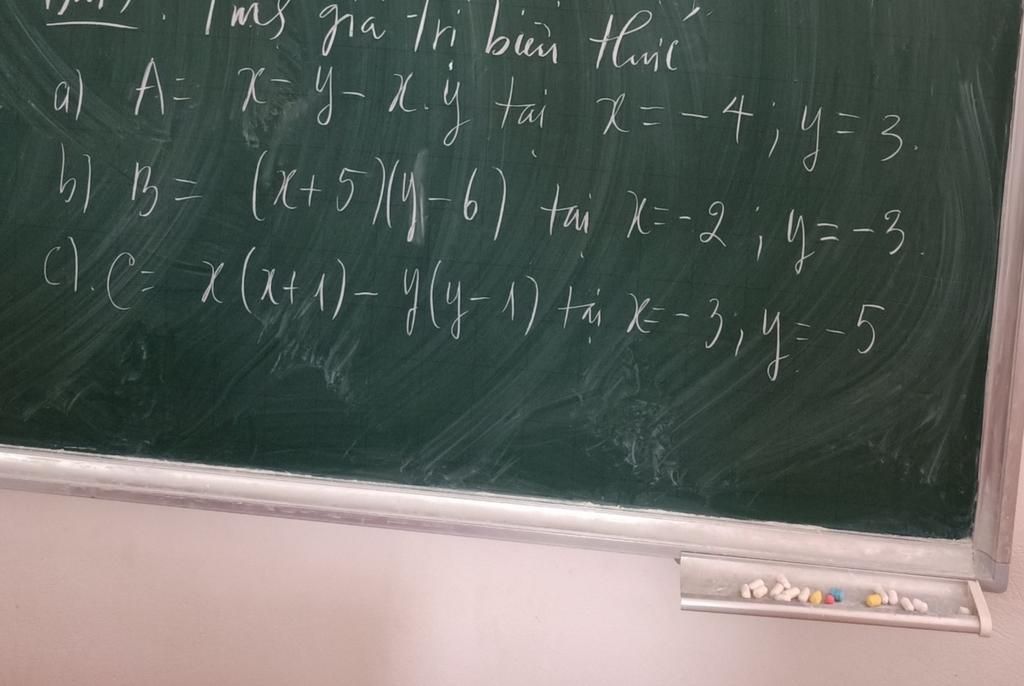 Tính giá trị biểu thức
a) A = x - y - x.y tại x = -4; y = 3.
b) B = (x+5)(y-6) tại x = -2; y = -3.
c). C = x(x+1) - y(y-1) tại x = -3; y = -5